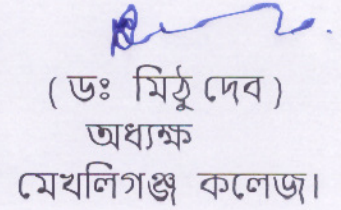 ( ডঃ মিঠু দেব )
অধ্যক্ষ
মেখলিগঞ্জ কলেজ।